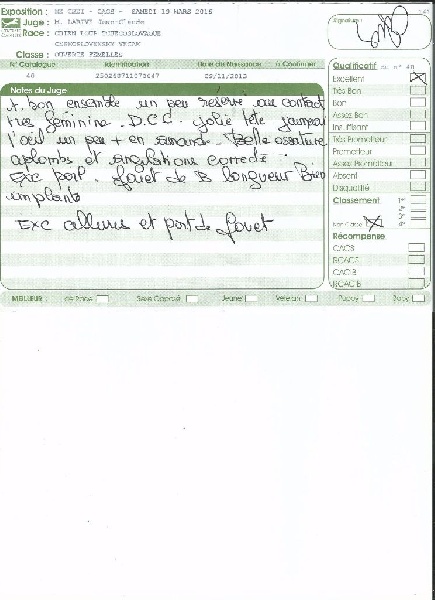 Exposition : - CACS - SAMEDI 19 MARS 2016
Juge : M. Jean-Claude
Race : CHIEN LOUP TCHECOSLOVAQUE
Classe : FEMELLES
N° Catalogue Identification Date de Naissance à Confirmer
48 09/11/2013
Notes du Juge
T. bon ensemble un peu reservé au contact
très féminine. D.C.C. Jolie tête
l'oeil un peu + en amande. Belle ossature
aplombs et angulations corrects
Exc port. fouet de B longueur Bien
implanté
Exc allures et port de fouet
Signature
Qualificatif du n° 48
Excellent
Très Bon
Bon
Assez Bon
Insuffisant
Très Prometteur
Prometteur
Assez Prometteur
Absent
Disqualifié
Classement 1er
2e
3e
4e
non Classé
Récompense
CACS
RCACS
CACIB
RCACIB
MEILLEUR : de Race Sexe Opposé Jeune Vétéran Puppy Baby